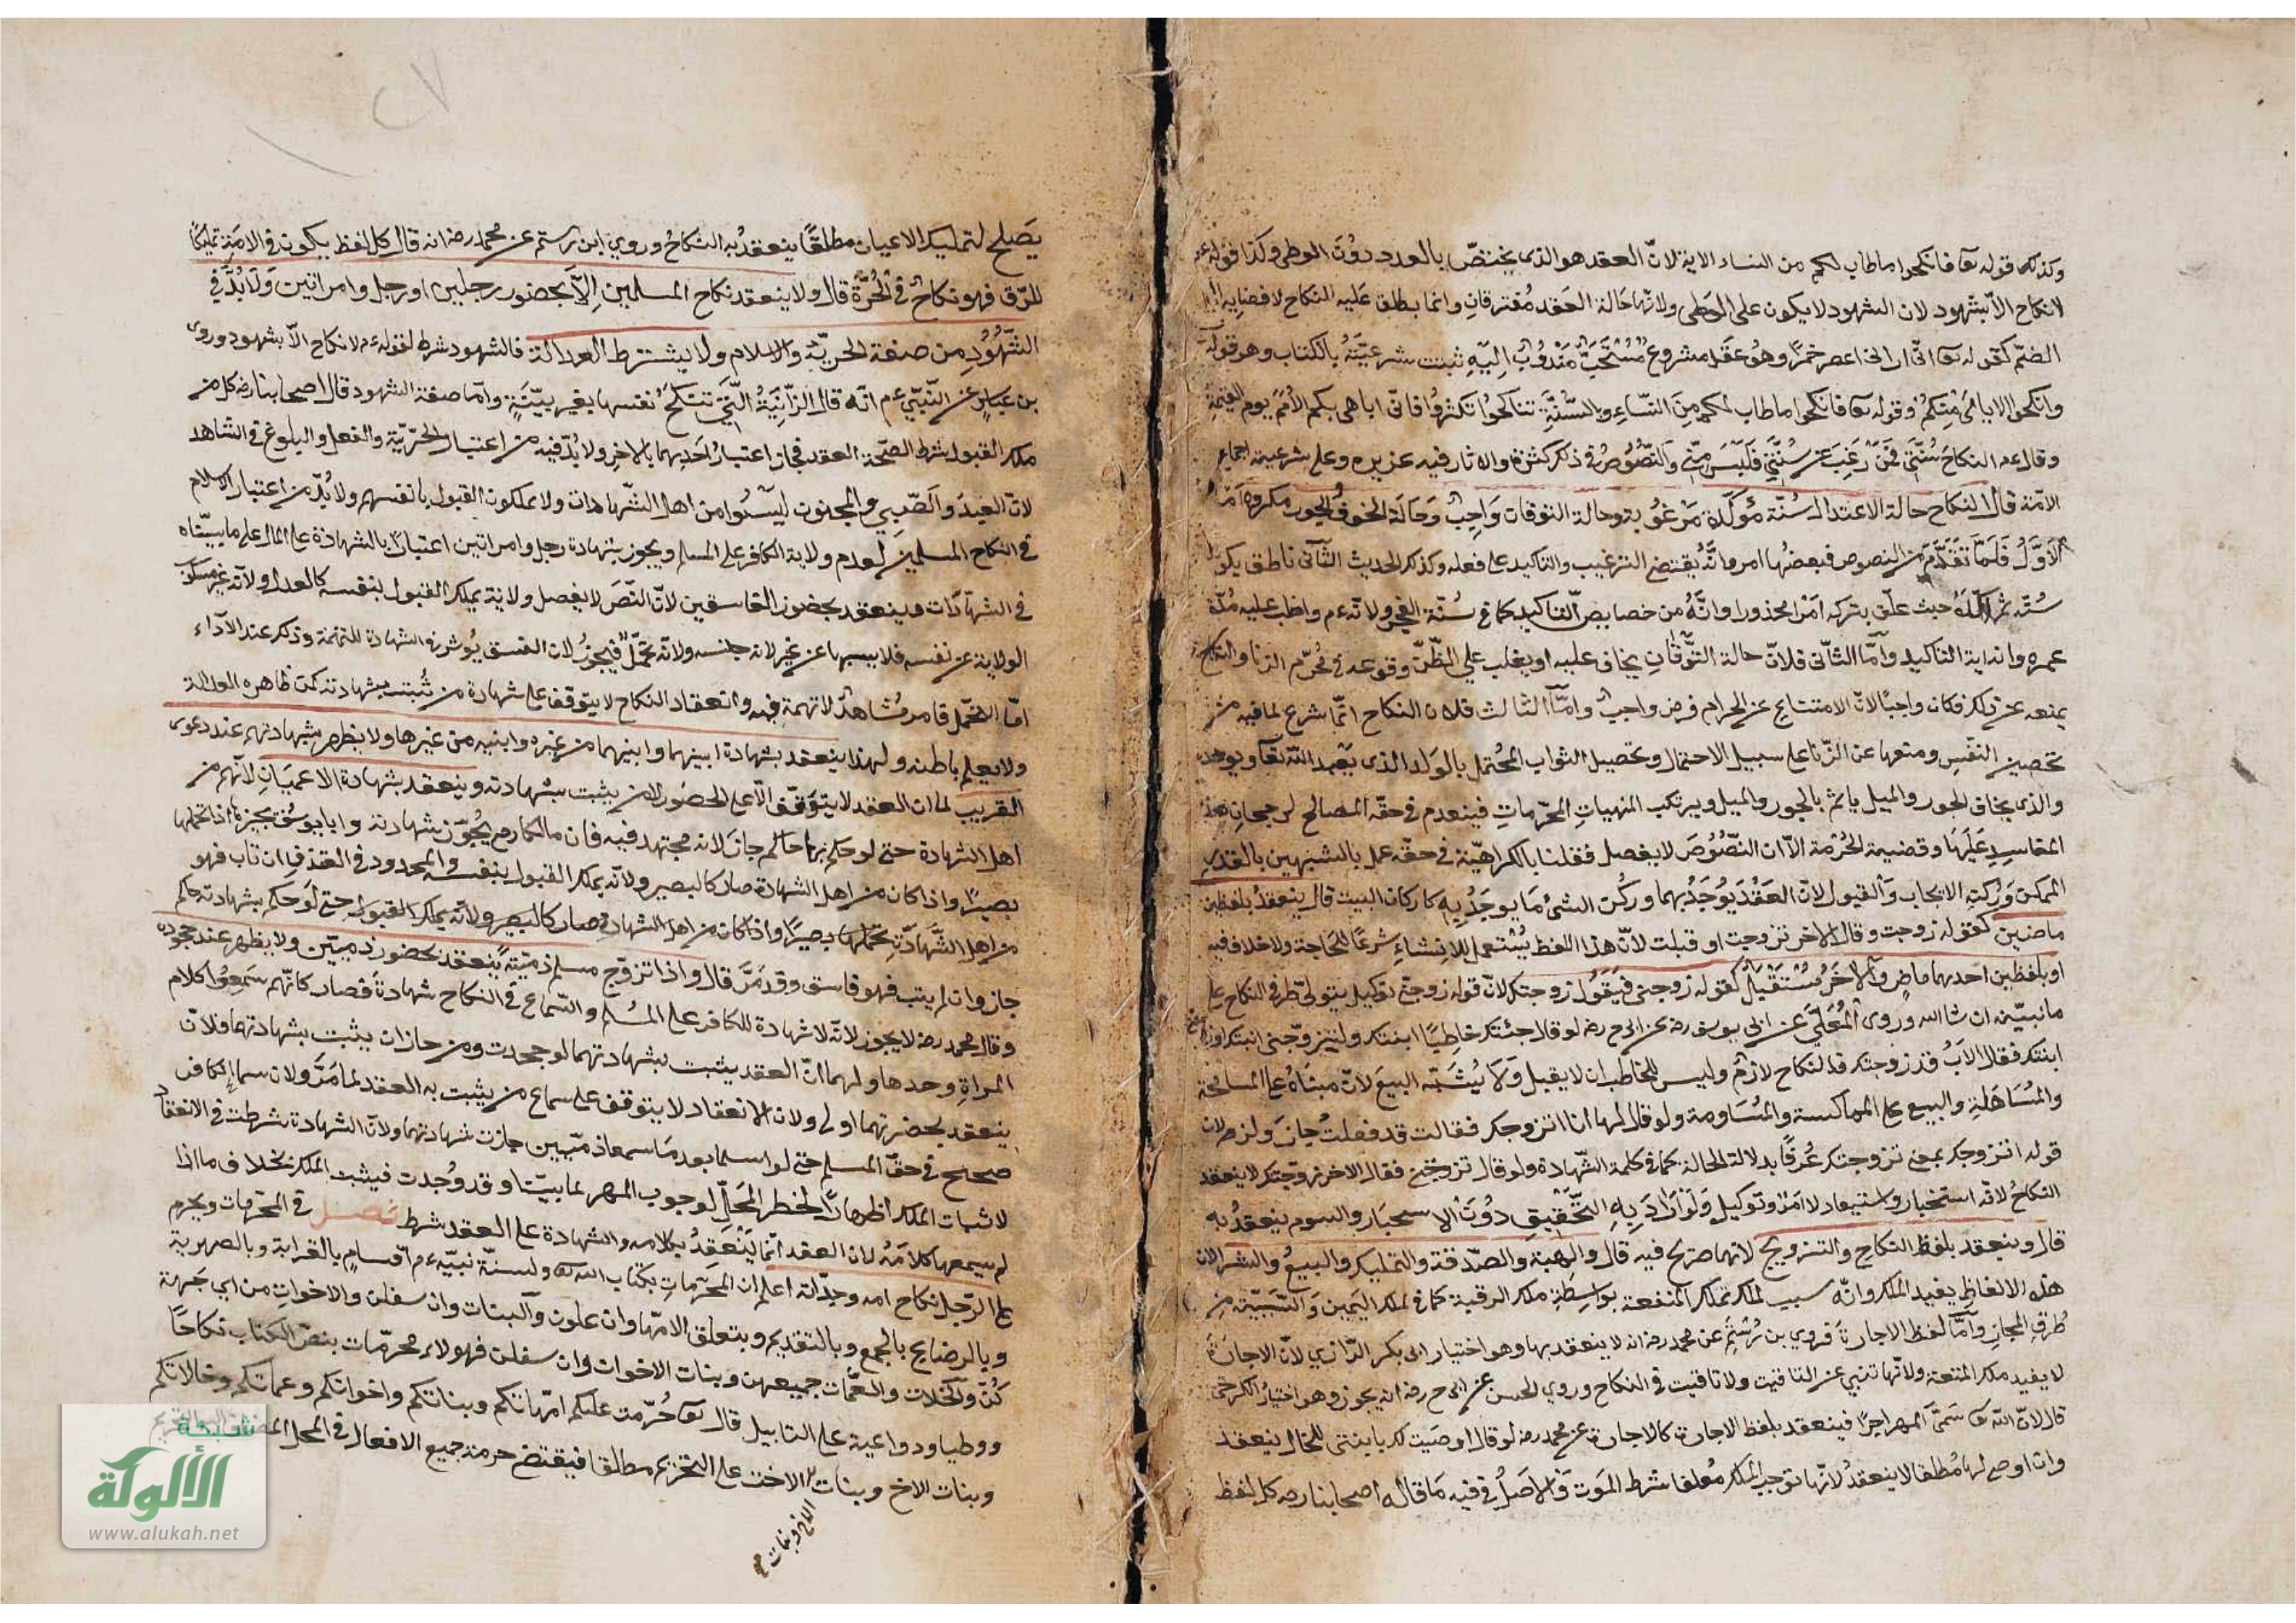 وكذلك قوله تعا فانكحوا ما طاب لكم من النساء الاية لانّ العقد هو الذى يختصّ بالعدد دون الوطى وكذا قوله عم
لا نكاح الاّ بشهود لان الشهود لا يكون على الوطى ولانّها حالة العقد مُفترقان وانما يطلق عليه النكاح لافضايه الى
الضمّ كقوله تعا انّى ارانى اعصر خمرًا وهو عقد مشروع مُسْتَحَبٌّ مَنْدُوبٌ اِليَهِ ثبت شرعيّتهُ بالكتاب وهو قوله
وانكحوا الايامىَ مِنكُمْ وقوله تعا فانكحوا ما طاب لكم مِنَ النّسَاءِ وبالسّنَّةِ تناكحُوا تكثرُوا فانّى اباهى بكم الاُمَم يوم القيمة
وقال عم النكاح سُنّتِى فَمَنْ رَغِبَ عن سُنّتِى فَلَيْسَ مِنِّى والنّصُوصُ فى ذكر كثرة والاثار فيه عزيره وعلى شرعيته اجماع
الامّة قال النكاح حالة الاعتدال سُنّة مؤكّدة مَرْغُوبة وحالة التوقان وَاجِبٌ وَحَالَة الخوف الجور مكروه امّا
الاَوَّلُ فَلَمَّا تَقَدَّمَ من النصوص فبعضُها امر وانّهُ يقتضى الترغيب والتاكيد على فعله وكذلك الحديث الثّانى ناطق بكونه
سُنّه ثم اكّدهُ حيث علّق بتركه امرًا محذورا وانّهُ من خصايص التّاكيد كما فى سُنّة الفجر ولانّه عم واظب عليه مُدّة
عمره وانه اية التاكيد وأمّا الثّانى فلانّ حالة التَّوَقَانِ يخاف عليه او يغلب على الظّنّ وقوعه فى مُحرّم الزنا والنكاح
يمنعه عن ذلك فكان واجبًا لانّ الامتناع عن الحرام فرض واجب وامّا الثّالث فلان النكاح انّما شرع لما فيه من
تحصين النفْسِ ومنعها عن الزّنا على سبيل الاحتمال وتحصيل الثواب المُحْتمل بالوَلد الذى يَعْبد اللّه تعا ويوحده
والذى يخاف الجور والميل ياثم بالجور والميل ويرتكب المنهيات المحرّمات فينعدم فى حقّه المصالح لرجحان هذه
المفاسِدِ عَلَيْهَا وقضيته الحُرْمة الاّ ان النّصُوُصَ لا يفصل فقلنا بالكراهيّة فى حقّه عمل بالشبهين بالقدر
الممكن وَرُكنه الايجاب وَالقبول لانّ العَقْدَ يُوجَدُ بهما وركُن الشىُ مَا يوجَدُ بِهِ كاركان البيت قال ينعقدُ بلفظين
ماضين كقوله زوجت وقال الاخر تزوجت او قبلت لانّ هذا اللفظ يُسْتعمل للانشاءِ شرعًا للحَاجة ولا خلاف فيه
او بلفظين احدهما ماضٍ والاخَرُ مُسْتَقْبَلٌ كقوله زوجنى فيَقُول زوجتك لانّ قوله زوجنى توكيل يتولى طرفى النكاح على
ما نبيّنه ان شا اللّه وروى المُعَلّى عن ابى يوسف رضه عن ابى ح رضه لو قال جئتك خاطبًا ابنتك ولتزوّجنى ابنتك
ابنتك فقال الاَبُ قد زوجتك فالنكاح لازمٌ وليس للخاطب ان لا يقبل وَلَا يُشَبّه البيعَ لانّ مبناهُ على المسامحة
والمُسَاهَلةِ والبيع على المماكسة والمُسَاومة ولو قال لها انا اتزوجك فقالت قد فعلتُ جازَ ولزم لان
قوله اتزوجك بمعنى تزوجتك عُرفًا بدلالة الحالة كما فى كلمة الشّهادة ولو قال تزوجنى فقال الاخر زوّجتك لا ينعقد
النكاحُ لانّه استخبار واستيعاد لا امر وتوكيل وَلَوْ اَرَادَ بِهِ التَّحْقِيقَ دُونَ الاستخبَار والسوم ينعقدُ به
قال وينعقد بلفظ النكاحِ والتزويج لانهما صريح فيه قال والهبة والصّدقة والتمليك والبيع والشرا لان
هذه الالفاظِ يفيد الملك وانّه سبب لملك تملك المنفعة بواسِطةِ ملك الرقبة كما فى ملك اليَمِين وَالسّبَبيّة مِن
طُرقِ المجاز وأمّا لفظ الاجارة فروي بن رُسْتُمِ عن محمد رضه انه لا ينعقد بها وهو اختيار ابى بكر الرّازي لانّ الاجارَة
لا يفيد ملك المتعة ولانّها تنبي عن التاقيت ولا تاقيت فى النكاح وروي الحسن عن ابى ح رضه انه يجوز وهو اختيارُ الكرخى
قال لانّ اللّه تعا سَمّىَ المهر اجرًا فينعقد بلفظ الاجارة كالاجارة عن محمد رضه لو قال اوصيت لك بابنتى للحال ينعقد
وان اوصى لها مُطلقا لا ينعقدُ لانّها توجب الملك مُعلقا شرط المَوت وَالاصَلُ فى فيه مَا قاله اصحابنا رضه كل لفظ
يَصَلح لتمليك الاعيان مطلقًا ينعقدُ به النكاحُ وروي ابن رستم عن محمد رضه انه قال كل لفظ يكون فى الامَةِ تمليكًا
للرّق فهو نكاحٌ فى الحُرّة قال ولا ينعقد نكاح المسلمين اِلاَّ بحضور رجلين او رجل وامراتين وَلَا بُدَّ فى
الشّهُودِ مِن صفة الحريّة والاسلام ولا يشترط العدالة فالشهود شرط لقوله عم لا نكاح الاّ بشهود وروى
بن عبّاسٍ عن النّبيّ عم انّه قال الزّانِيَةُ الّتِى تنكح نفسها بغير بيّنةٍ وأمّا صفة الشهود قال اصحابنا رضه كل من
ملك القبول شرط لصحّة العقد فجاز اعتبارُ اَحَدِهما بالاخرِ ولا بُدّ فيه من اعتبار الحرّيّة والعقل والبلوغ فى الشاهد
لانّ العبدَ والصّبي والمجنون ليسُوا من اهل الشّهادات ولا يملكون القبول بانفسهم ولا بُدّ من اعتبار الاسلام
فى النكاح المسلمين لعدم ولاية الكافر على المسلم ويجوز بشهادة رجل وامراتين اعتبارًا بالشهادة على المال على ما بيّناه
فى الشهادَات وينعقد بحضور الفاسقين لانّ النّصَ لا يفصل ولانّه يملك القبول بنفسه كالعدل ولانّه غير مسلوب
الولاية عن نفسه فلا يسبها عن غيره لانه جنسه ولانّه تحَمّلٌ فيجوزُ لان الفسق يُوثر فى الشهادة للتهمة وذلك عند الاَداء
امّا التحمّل فامر مُشاهدٌ لا تهمة فيه وانعقاد النكاح لا يتوقف على شهادة من يُثبت بشهادته كمن ظاهره العدالة
ولا يعلم باطنه ولهذا ينعقد بشهادة ابنيهما وابنيهما من غيره وابنيه من غيرها ولا يظهر بشهادتهم عند دعوى
القريب لما ان العقد لا يتوَقّف الاّ على الحضور لا من يثبت بشهادته وينعقد بشهادة الاعميَانِ لانّهم من
اهل الشهادة حتى لو حكم بها حاكم جازَ لانه مجتهد فيه فان مالكا رح يُجَوّز شهادته وابا يوسُف يجيزها اذا تحملها
بصيرًا واذا كان من اهل الشهادة صار كالبصير ولانّه يملك القبول بنفسه والمحدود فى القذفِ ان تاب فهو
من اهل الشَّهَادَةِ تحملها بصيرًا واذا كان من اهل الشهادة صار كالبصير ولانّه يملك القبول حتى لَو حكم بشهادته حاكم
جاز وان لم يتب فهو فاسق وقد مَرَّ قال واذا تزوّج مسلم ذميّة ينعقد بحضور ذميّين ولا يظهر عند جحوده
وقال محمد رضه لا يجوز لانّه لا شهادة للكافر على المُسْلم والسّماع فى النكاح شهادةَ فصار كانّهم سَمِعُوا كلام
المراةِ وحدها ولهما انّ العقد يثبت بشهادتهما لو جحدت ومن جاز ان يثبت بشهادتهما فلان
ينعقد بحضرتهما اولى ولان الانعقاد لا يتوقف على سماع من يثبت به العقد لما مَرّ ولان سماع الكافر
صحيح فى حقّ المسلم حتى لو اسلما بعد مَا سمعا ذميّين جازت شهادتهما ولانّ الشهادة شرطت فى الانعقاد
لاثبات الملك اظهارًا لخطر المحَلّ لوجوب المهر لما بيّنا وقد وُجدت فيثبت الملك بخلاف ما اذا
لم يسمعها كلامَهُ لان العقد انّما يَنْعَقدُ بكلامه والشهادة على العقد شرط فصل فى المحرّمات ويحرم
على الرّجل نكاح امه وجدّاته اعلم ان المحَرّمات بكتاب اللّه تعا ولسنّة نبيّه عم اَقسامٍ بالقرابة وبالصهرية
وبالرضاع بالجمع وبالتقديم وبتعلق الامّها وان علون والبنات وان سفلن والاخواتِ من اي جَهة
كُنّ والخَلات والعَمّات جميعهن وبنات الاخوات وان سفلن فهولاء محرّمات بنصّ الكتاب نكاحًا
ووطيا ودواعية على التابيل قال تعا حُرّمت عليكم امّهاتكم وبناتكم واخواتكم وعمّاتكم وخالاتكم
وبنات الاخ وبنات الاخت على التحريم مطلقا فيقتضى حرمة جميع الافعال فى المحل
الاخ وبنات صح
شبكة
الألوكة
www.alukah.net
٢٧